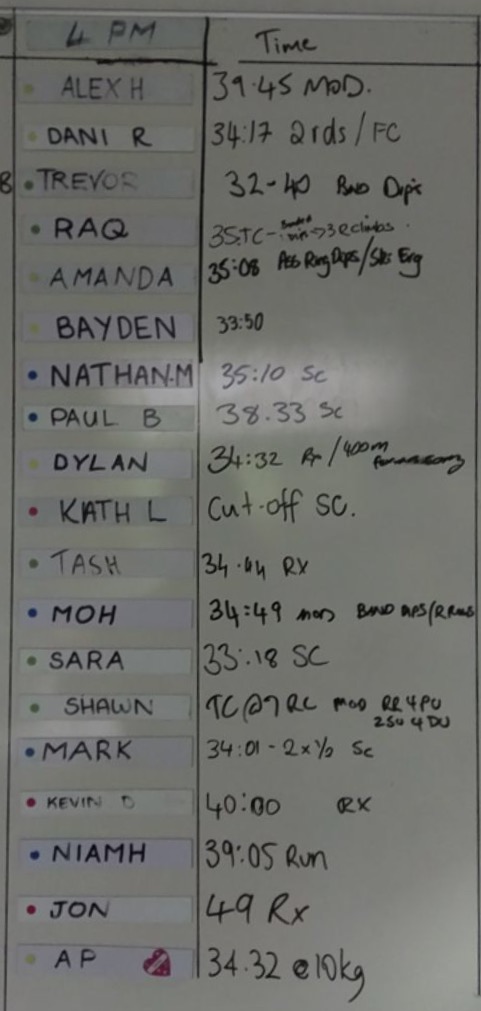 4 PM Time
ALEX H 39.45 MOD.
DANI R 34:17 2rds / FC
8 TREVOR 32-40 BAND Dips
RAQ 35.TC - → 3 R climbs.
AMANDA 35:08 Ass Ring Dips / Ski Erg
BAYDEN 33:50
NATHAN.M 35:10 SC
PAUL B 38.33 SC
DYLAN 34:32 Rx / 400m
KATH L Cut-off SC.
TASH 34.44 RX
MOH 34:49 MOD BAND
SARA 33:18 SC
SHAWN TC @ 7 RC MOD RR 4 PU
4 DU
MARK 34:01 - 2 x ½ SC
KEVIN D 40:00 RX
NIAMH 39:05 Run
JON 49 Rx
AP 34.32 @ 10kg